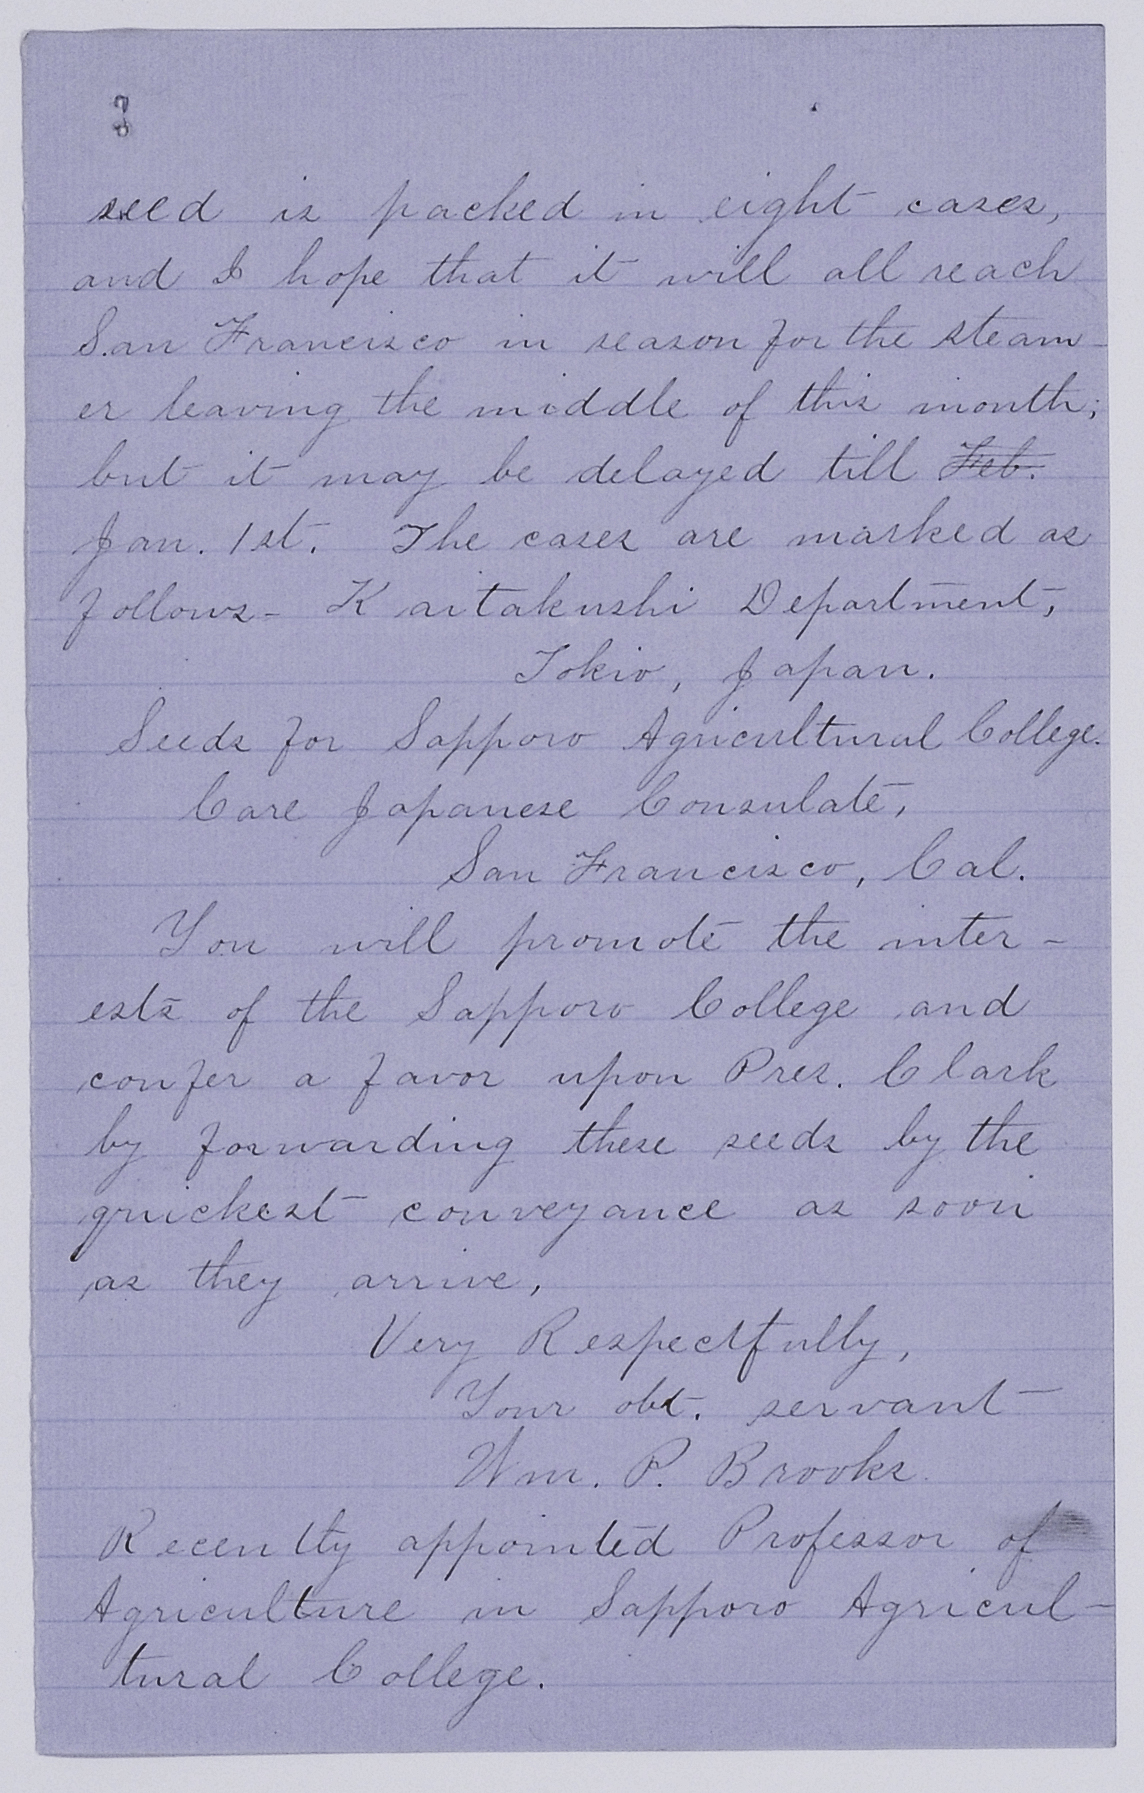 seed is packed in eight cases,
and I hope that it will all reach
San Francisco in season for the steam-
er leaving the middle of this month;
but it may be delayed till ~~Feb.~~
Jan. 1st. The cases are marked as
follows- Kaitakushi Department,
Tokio, Japan.
Seeds for Sapporo Agricultural College.
Care Japanese Consulate,
San Francisco, Cal.
You will promote the inter-
ests of the Sapporo College and
confer a favor upon Pres. Clark
by forwarding these seeds by the
quickest conveyance as soon
as they arrive,
Very Respectfully,
Your obt. servant
Wm. P. Brooks.
Recently appointed Professor of
Agriculture in Sapporo Agricul-
tural College.